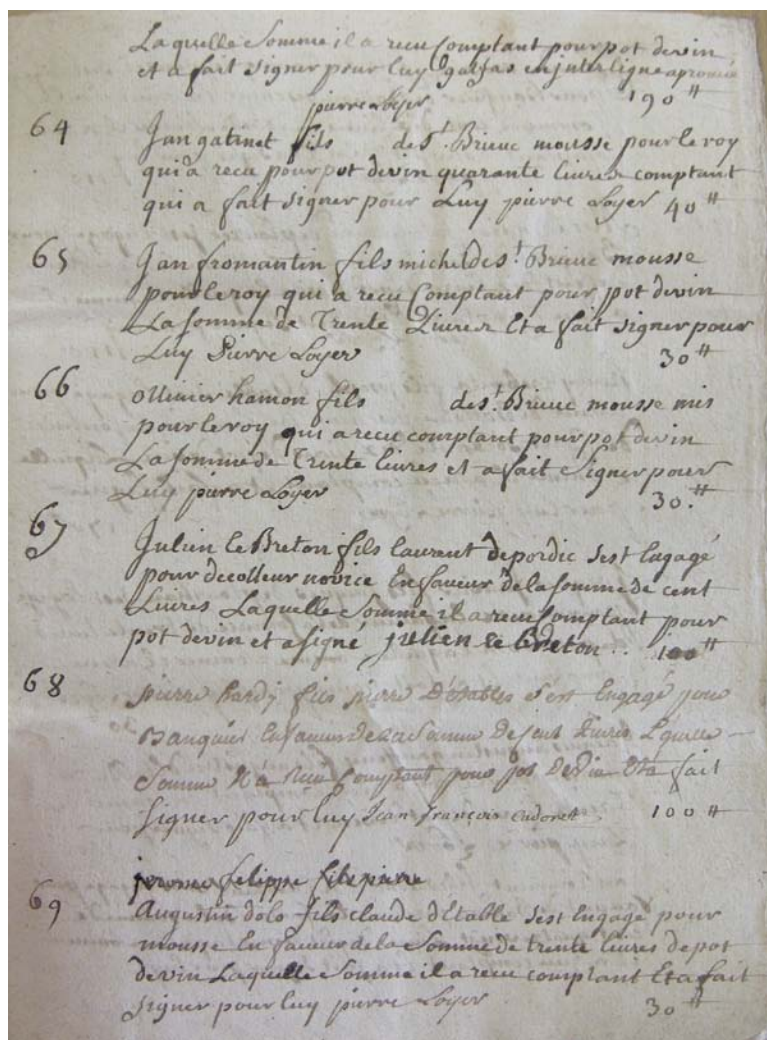 Laquelle somme il a receu comptant pour pot devin
et a fait signer pour luy en interligne aprouvé
pierre loyer 190 ₶
64 Jan gatinet fils de St. Brieuc mousse pour le roy
qui a receu pour pot devin quarante livres comptant
qui a fait signer pour Luy pierre Loyer 40 ₶
65 Jan fromantin fils michel de St. Brieuc mousse
pour le roy qui a receu Comptant pour pot devin
La somme de Trente Livres Et a fait signer pour
Luy Pierre Loyer 30 ₶
66 ollivier hamon fils de St. Brieuc mousse mis
pour le roy qui a receu comptant pour pot devin
La somme de Trente livres et a fait Signer pour
Luy pierre Loyer 30. ₶
67 Julien le Breton fils laurant de pordic sest Engagé
pour decolleur novice En faveur de la somme de cent
Livres Laquelle somme il a receu Comptant pour
pot devin et a signé julien le breton .. 100 ₶
68 pierre hardy fils pierre D'étables s'est Engagé pour
En faveur de la Somme De Cent Livres Laquelle
Somme Il a Receu Comptant pour pot De Vin Et a fait
signer pour luy Jean François cadoret. 100 ₶
jerome felippe fils pierre
69 Augustin dolo fils claude d'Etable sest Engagé pour
mousse En faveur de la Somme de trente livres de pot
devin Laquelle Somme il a receu comptant Et a fait
signer pour luy pierre Loyer 30 ₶